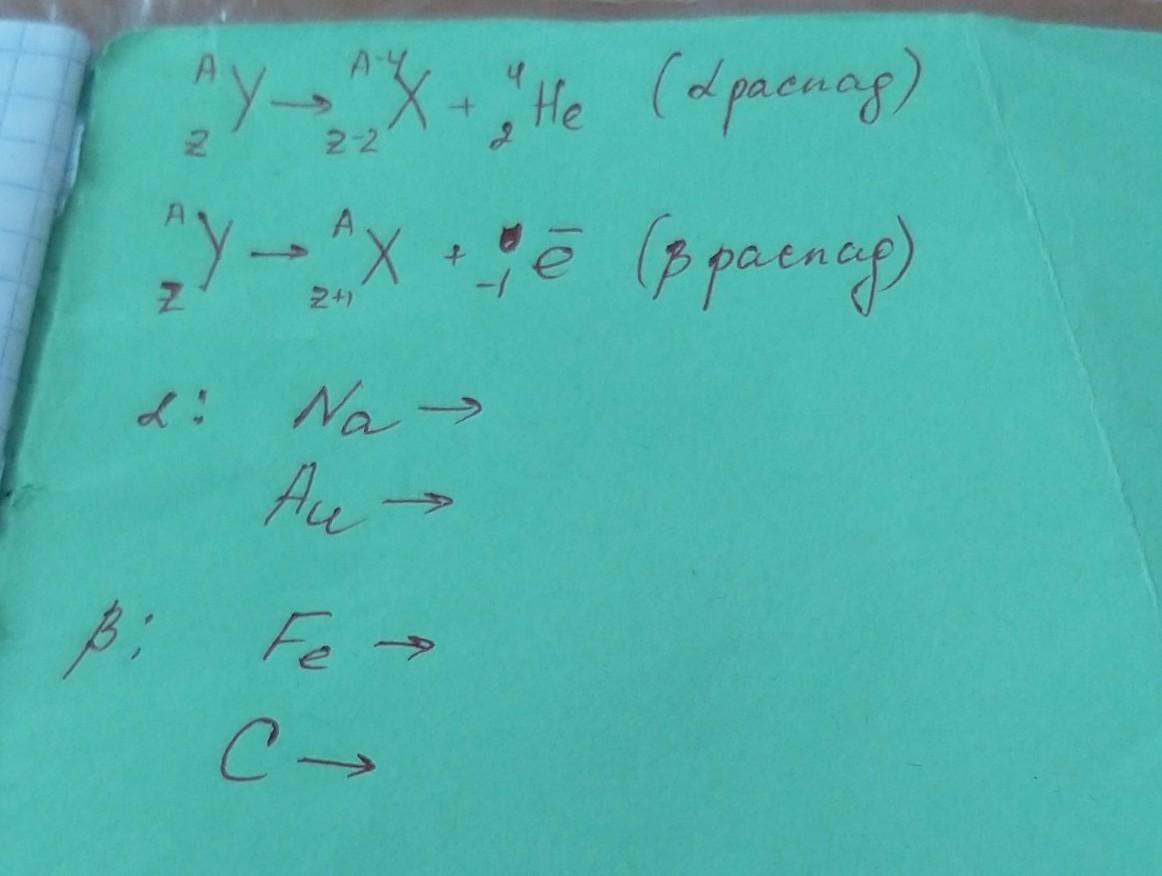 ᴬ_Z Y → ᴬ⁻⁴_Z-2 X + ⁴₂He (α распад)
ᴬ_Z Y → ᴬ_Z+1 X + ⁰₋₁e̅ (β распад)
α: Na →
Au →
β: Fe →
C →